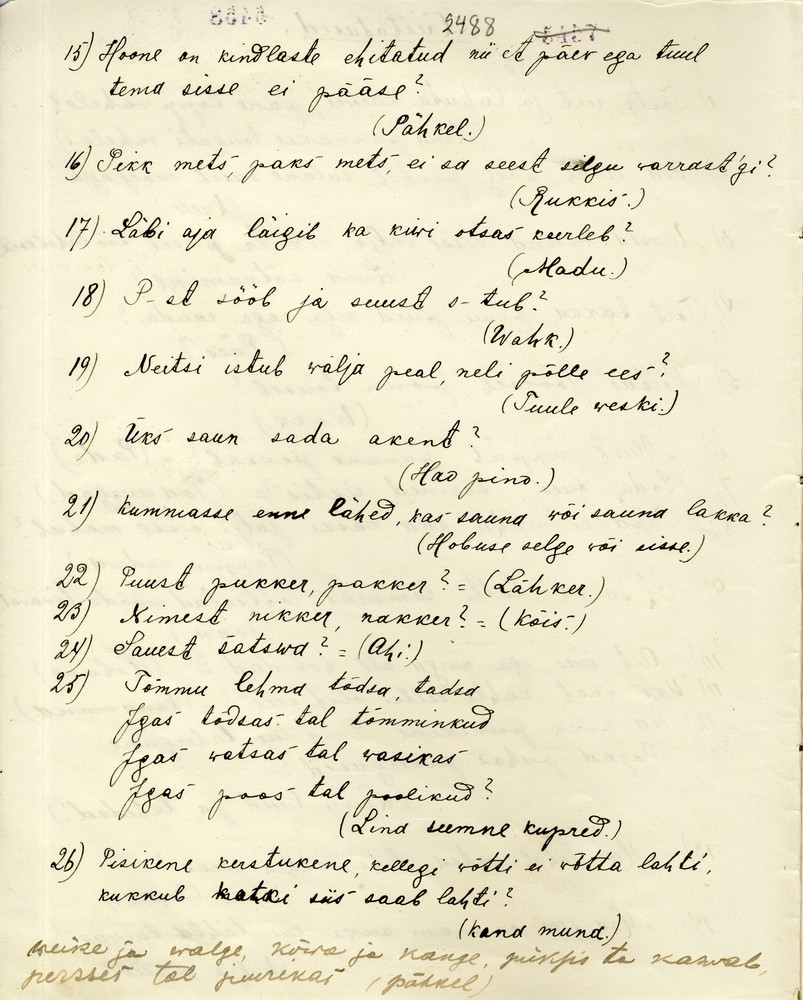 2488 5457
15) Hoone on kindlaste ehitatud nii et päev ega tuul
tema sisse ei pääse?
(Pähkel.)
16) Pikk mets, paks mets, ei sa seest selgu warrast'gi?
(Rukkis.)
17) Läbi aja läigib ka kiwi otsas keerleb?
(Madu.)
18) P-st sööb ja suust s-tub?
(Wahk.)
19) Neitsi istub wälja peal, neli põlle ees?
(Tuule weski.)
20) Üks saun sada akent?
(Hao pino.)
21) Kummasse enne lähed, kas sauna wõi sauna lakka?
(Hobuse selge wõi sisse.)
22) Puust pukker, pakker? = (Lähker.)
23) Nimest nikker, nakker? = (Kõis.)
24) Sauest satswa? = (Ahi.)
25) Tõmmu lehma tõdsa, tadsa
Igas tõdsas tal tõmminkud
Igas watsas tal wasikas
Igas poos tal poolikud?
(Lina seemne kupred.)
26) Pisikene kerstukene, kellegi wõtti ei wõtta lahti,
kukkub katki siis saab lahti?
(kana muna.)
weike ja walge, kõwa ja kange, püksis ta kaswab,
persses tal juurekas (pähkel)